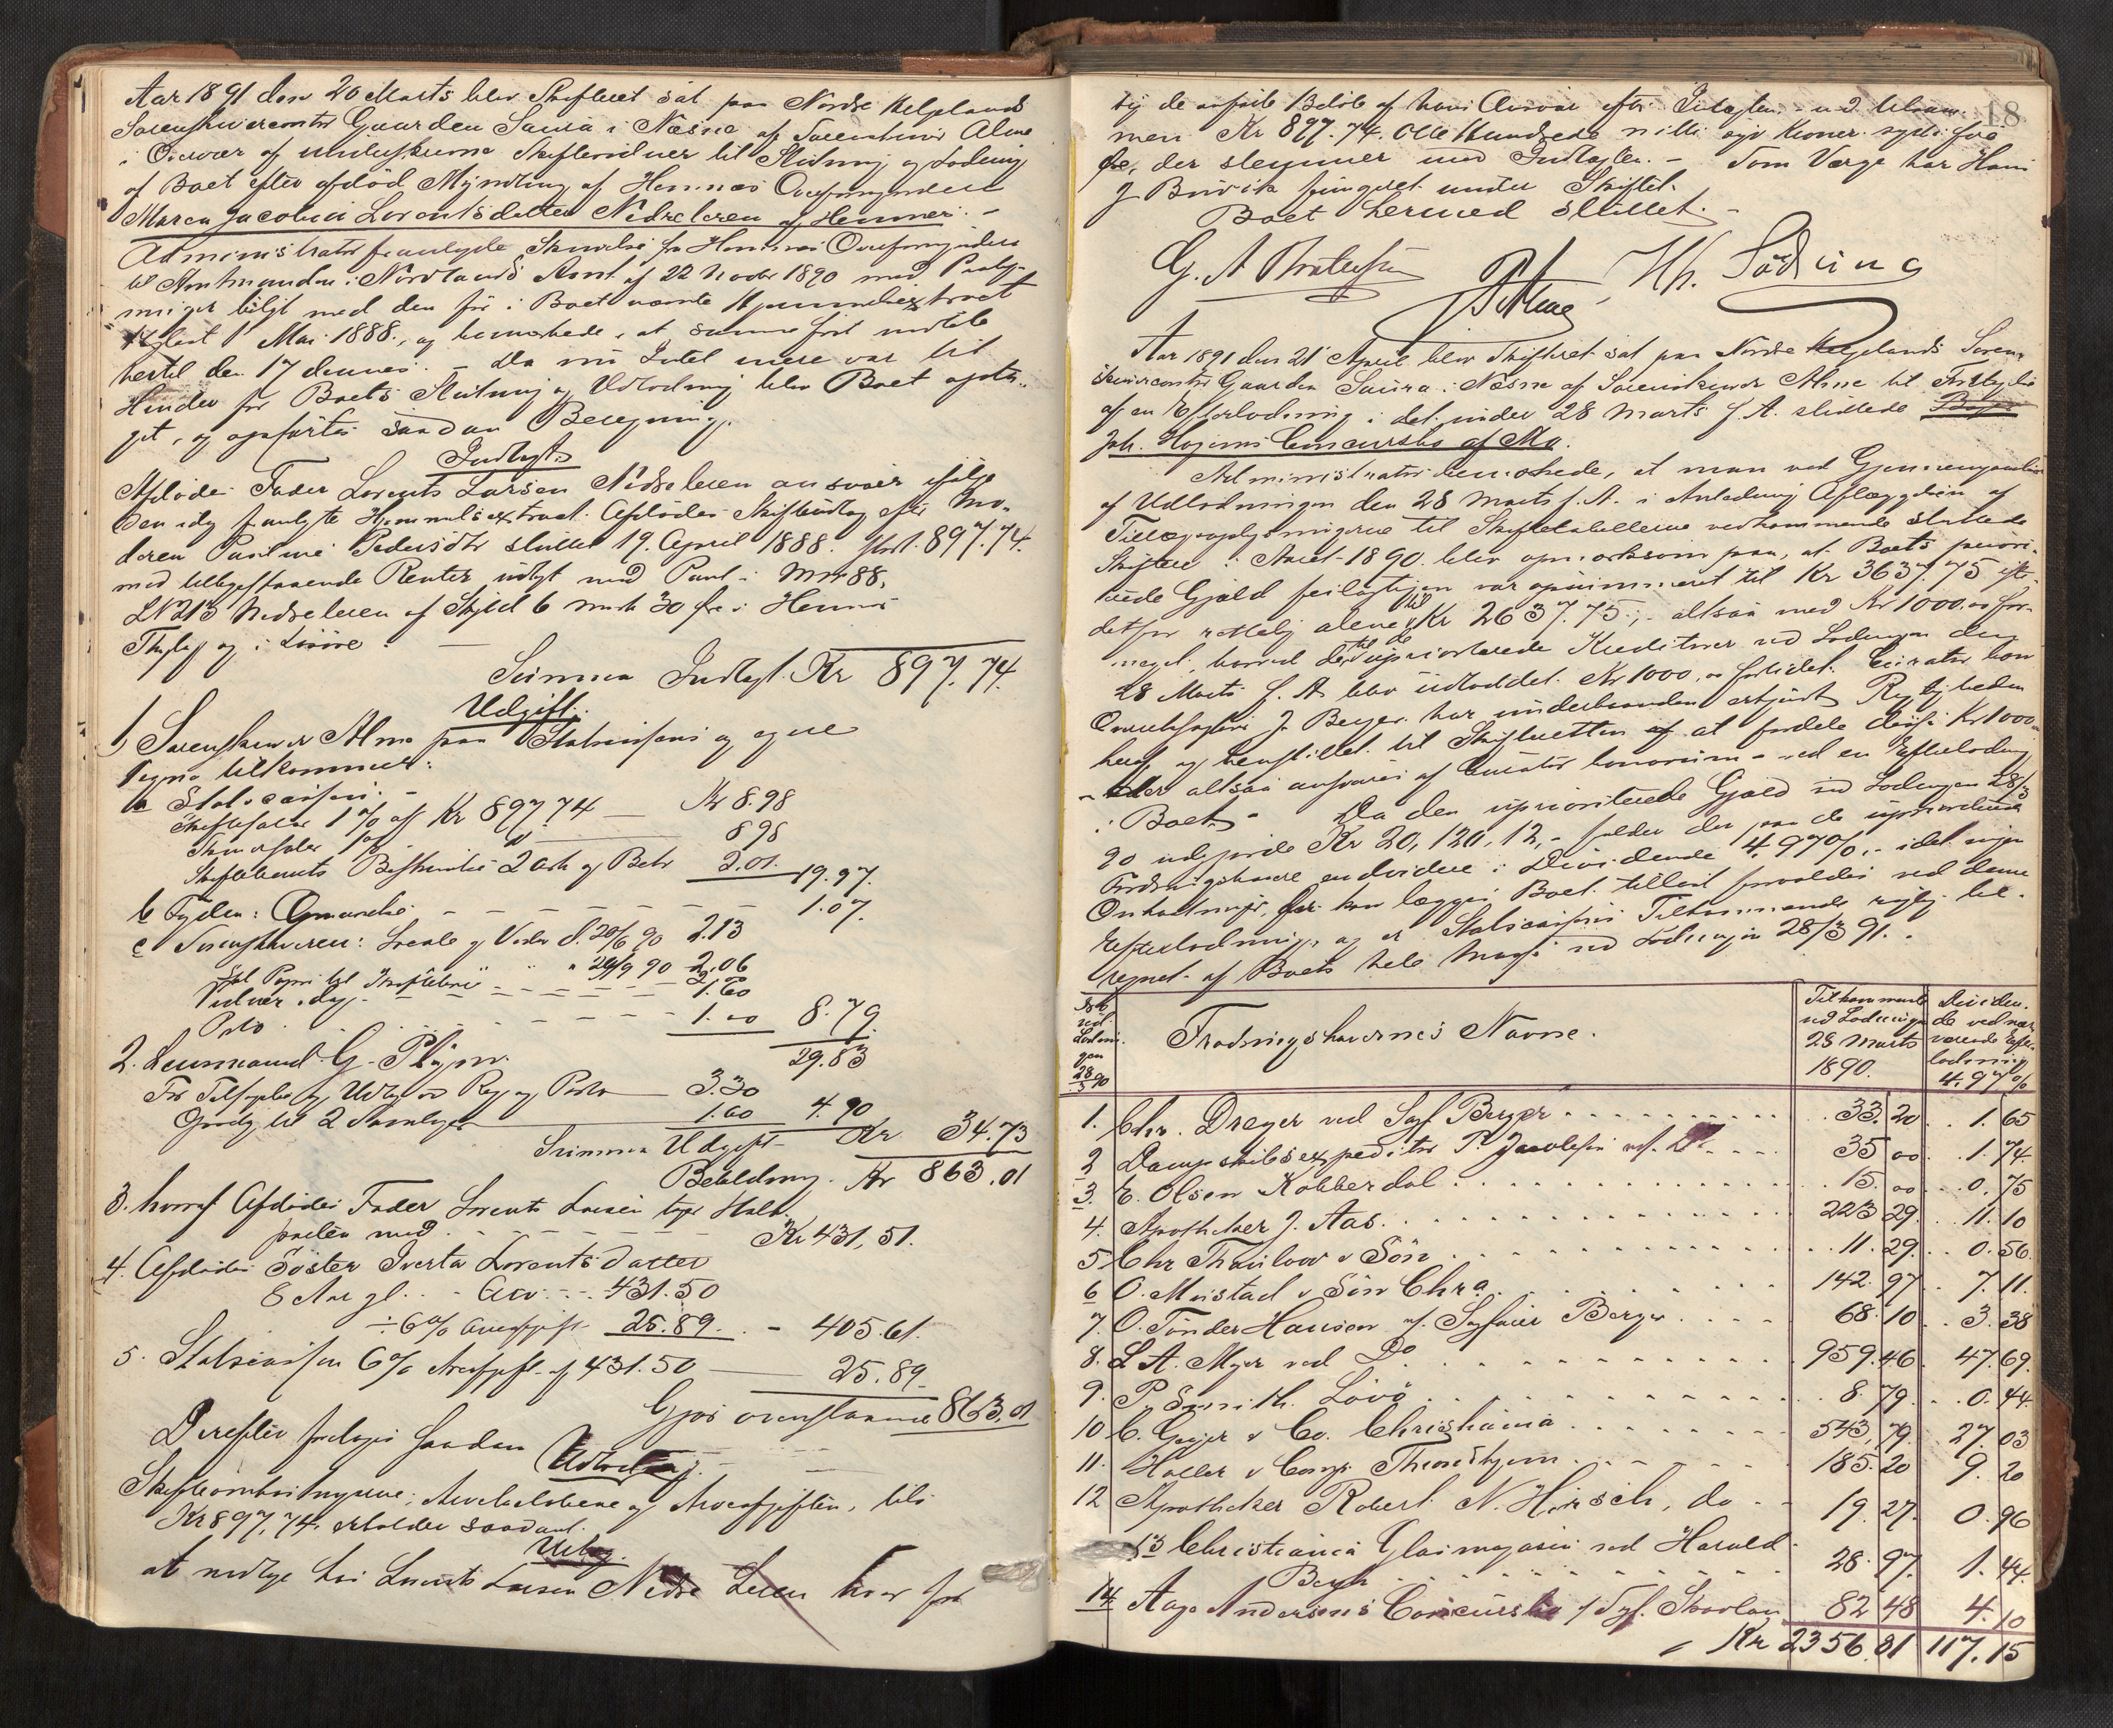 Aar 1891 den 20 Marts blev Skifteret sat paa Nordre Helgelands
Sorenskrivercontor Gaarden Saura i Næsne af Sorenskriver Alme
i Overvær af undertegnede Skiftevidner til Slutning og Lodning
af Boet efter afdød Myndling af Hemnes Overformynderi
Maren Jacobine Lorentsdatter Nedreleren af Hemnes. –
Administrator fremlagde Skrivelse fra Hemnes Overformynderi
til Amtmanden i Nordlands Amt af 22 Novbr 1890 med Paateg-
ninger bilagt med den før i Boet nævnte Hjemmelsextract
tinglæst 1 Mai 1888, og bemærkede, at samme først indløb
hertil den 17 dennes. – Da nu Intet mere var til
Hinder for Boets Slutning og Udlodning blev Boet opta-
get, og opførtes saadan Beregning.
Indtægt.
Afdødes Fader Lorents Larsen Nedreleren ansvarer ifølge
den idag fremlagte Hjemmelsextract Afdødes Skifteudlæg efter Mo-
deren Pauline Pedersdtr sluttet 19. April 1888. stort 897.74.
med tillægsstaaende Renter udlagt med Pant i Mno 88,
LN 213 Nedreleren af Skyld 6 mark 30 øre i Hemnes
Thinglag og i Løsøre.
Summa Indtægt. Kr 897.74.
Udgift.
1. Sorenskriver Alme paa Statscassens og egne
Vegne tilkommer:
a Statscassen: –
Skiftesalær 1 % af Kr 897.74 — Kr 8.98
Skriversalær 1 % do — 898
Skifteamts Beskrivelse 2 ark og Bekr 2.01. 19.97.
b Føden: Qvarde – – – – – 1.07.
c Sorenskriveren: Locale og Vidn d. 20/6 90 2.13
" " 24/9 90 2.06
Vidner idag – – – – 1.60
Porto – – – – 1.00 8.79
29.83
2. Lensmand G. Plahn.
For Tilsigelse og Udlæg med Reg og Porto — 3.30
Godtg til 2 Samlinger 1.60 4.90
Summa Udgift Kr 34.73
Beholdning. Kr 863.01
3. hvoraf Afdødes Fader Lorents Larsen tager Halv-
parten med – – – – – Kr 431,51.
4. Afdødes Søster Iverta Lorentsdatter
8 Aar gl. – Arv – – 431.50
÷ 6 % Arveafgift 25.89. – 405.61.
5. Statscassen 6 % Arveafgift af 431.50 — 25.89.
Gjør ovenstaaende 863,01
Derefter foretoges saadan
Udlodning.
Skifteomkostningerne, Arvelodderne og Arveafgiften, tils
Kr 897,74. erholder saadant
Udlæg.
at modtage hos Lorents Larsen Nedre Leren hvor for
18
bij de anførte Beløb af hans Ansvar efter Indtægten – ud tilsam-
men Kr 897.74. Otte Hundrede nitti syv Kroner sytti fire
Øre, der stemmer med Indtægten. – Som Værge har Hans
J Brurvik fungeret under Skiftet.
Boet hermed sluttet. –
Alme
H. Södring
Aar 1891 den 21 April blev Skifteret sat paa Nordre Helgelands Soren-
skrivercontor Gaarden Saura i Næsne af Sorenskriver Alme til Foretagelse
af en Efterlodning i det under 28 Marts f. A. sluttede
Joh. Hagens Concursbo af Mo.
Administrator bemærkede, at man ved Gjennemgaaelse
af Udlodningen den 28 Marts f. A. i Anledning Aflæggelsen af
Tillægsopgivningerne til Skiftetabellerne vedkommende sluttede
Skifter i Aaret 1890. blev opmærksom paa, at Boets priori-
terede Gjæld feilagtigen var opsummeret til Kr 3637.75 iste-
detfor rettelig alene til Kr 2637.75; altsaa med Kr 1000,00 for-
meget, hvorved de til de upriorterede Kreditorer ved Lodningen den
28 Marts f. A. blev udloddet Kr 1000,00 forlidet. Curator bon
Overretssagfører J Berger har underhaanden erkjendt Rigtigheden
heraf og henstillet til Skifteretten at fordele disse Kr 1000
– der altsaa ansvares af Curator bonorum – ved en Efterlodning
i Boet. – Da den uprioriterede Gjæld ved Lodningen 28/3
90 udgjorde Kr 20,120,12, – falder der paa de upriorterede
Fordringshavere endvidere i Dividende 4,97 %. – idet ingen
Omkostninger kan lægges Boet tillast forvoldt ved denne
Efterlodning, og er Statscassens Tilkommende rigtig be-
regnet af Boets hele Masse ved Lodningen 28/3 91. –
No ved Lodnin-gen 28/3 90 Fordringshavernes Navne. Tilkommende ved Lodningen 28 Marts 1890. Dividen-de ved nær-værende Efter-lodning 4.97 %
1. Chr. Dreyer ved Sagf Berger 33. 20 1. 65
2 Dampskibsexpeditør P. Jacobsen ved Do 35 00 1. 74.
3. E. Olsen Kobberdal 15. 00 0. 75
4. Apotheker J. Aas. 223 29. 11. 10
5 Chr Thaulow & Søn 11. 29. 0. 56.
6 O. Mustad & Søn Chra 142. 97 7. 11.
7. O. Tønder Hansen v. Sagfører Berger 68. 10 3. 38
8. L A. Myer ved Do 959. 46. 47. 69.
9. P. Smith. Lovø 8. 79. 0. 44.
10 C. Geijer & Co. Christiania 543, 79. 27. 03
11. Haller & Comp. Throndhjem 185. 20 9. 20
12 Apotheker Robert N. Hirsch, do 19. 27. 0. 96
13 Christiania Glasmagasin ved Harald
Bergh 28. 97. 1. 44.
14 Aage Andersens Concursbo v/ Sagf. Skavlan 82 48 4. 10
Kr 2356. 81 117. 15